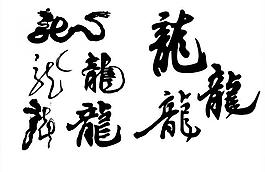 龍
龍
龍
龍
龍
龍
龍
龍